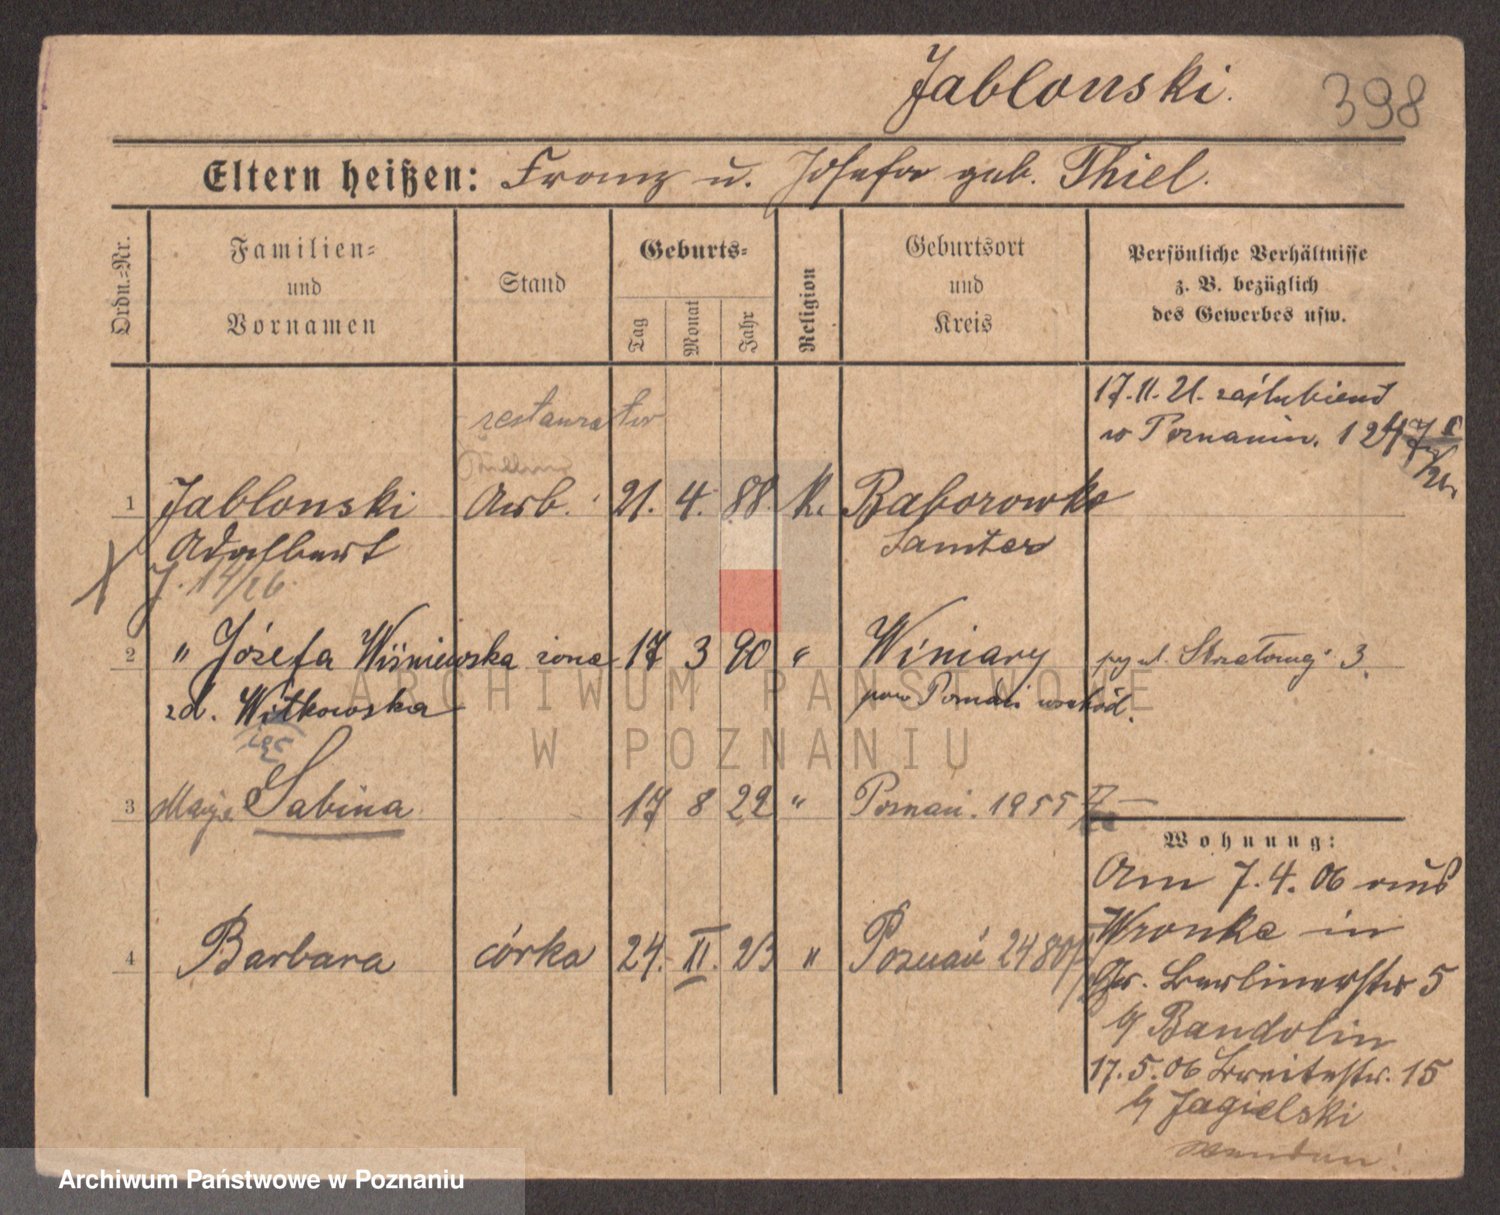 Jablonski.
398
Eltern heißen: Franz u. Josefa geb. Thiel.
Ordn.-Nr.
Familien-
und
Vornamen
Stand
Geburts-
Tag
Monat
Jahr
Religion
Geburtsort
und
Kreis
Persönliche Verhältnisse
z. B. bezüglich
des Gewerbes usw.
17.11.21. zaślubieni
w Poznaniu.
restaurator
1 Jablonski Arb. 21. 4. 88. k. Baborowko
Adalbert Samter
J. 14/26
2 " Józefa Wiśniewska żona 17 3 90 " Winiary 3
zd. Witkowska pow Poznań wschód.
3 Marja Sabina 17 8 22 " Poznań. 1955
Wohnung:
Am 7.4.06 aus
Wronke in
4 Barbara córka 24. II. 23 " Poznań 2480
Gr. Berlinerstr 5
b/ Bandolin
17.5.06 Breitestr. 15
b/ Jagielski
wenden!
ARCHIWUM PAŃSTWOWE
W POZNANIU
Archiwum Państwowe w Poznaniu